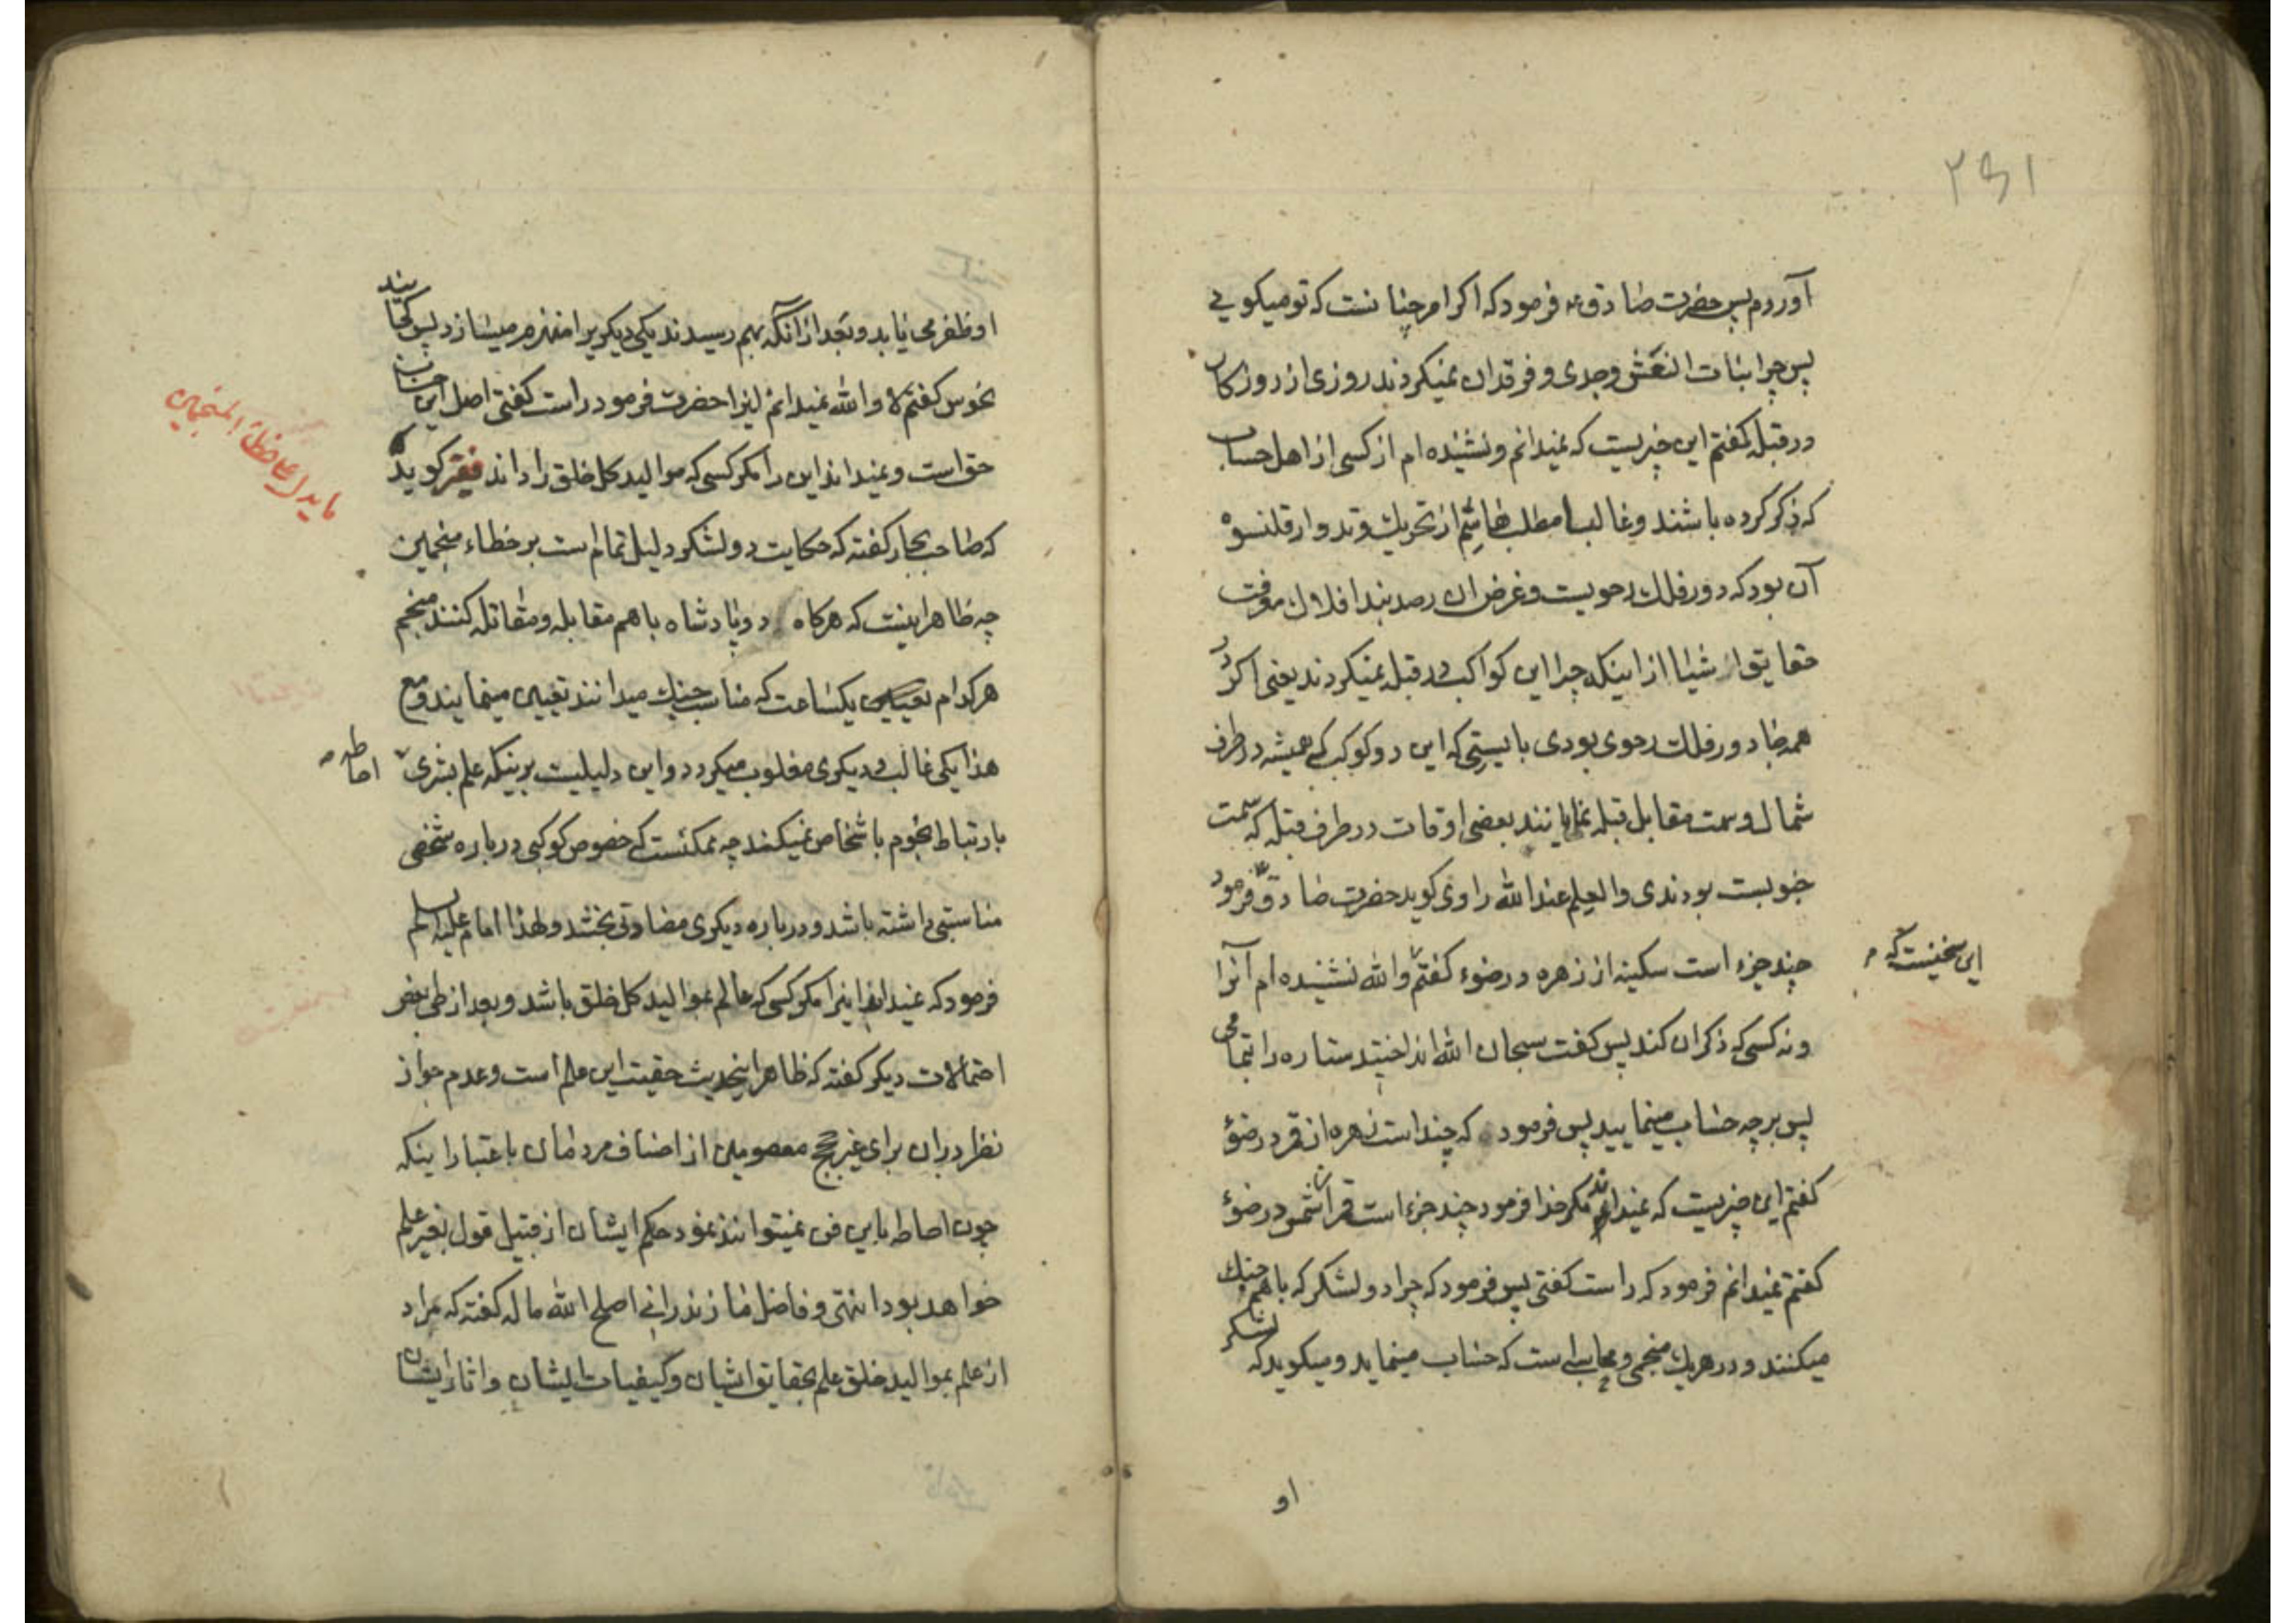 ۲۵۱
آوردم پس حضرت صادق ع فرمود که اکر امر چنانست که تو میکویی
پس چرا بنات النعش وجدی و فرقدان نمیکردند روزی از روزکار
در قبله کفتم این چیزیست که نمیدانم و نشنیده ام از کسی از اهل حساب
که ذکر کرده باشند و غالبا مطلب هاشم از تحریک و تدوار قلنسوه
آن بود که دور فلک رحویست و غرض ان رصد بند افلاک معرفت
حقایق اشیا از اینکه چرا این کواکب در قبله نمیکردند یعنی اکر در
همه جا دور فلک رحوی بودی بایستی که این دو کوکب که همیشه در طرف
شمال و سمت مقابل قبله نمایانند بعضی اوقات در طرف قبله که سمت
جنوبست بودندی والعلم عند الله راوی کوید حضرت صادق ع فرمود
چند جزء است سکینه از زهره در ضوء کفتم والله نشنیده ام آنرا
این سخنیست که
و نه کسی که ذکر ان کند پس کفت سبحان الله انداختید ستاره را بتمامی
پس بر چه حساب مینمایید پس فرمود که چند است زهره از قمر در ضوء
کفتم این چیزیست که نمیداند مکر خدا فرمود چند جزء است قمر از شمس در ضوء
کفتم نمیدانم فرمود که راست کفتی پس فرمود که چرا دو لشکر که باهم جنک
میکنند و در هریک منجمی و محاسبی است که حساب مینماید و میکوید که لشکر
او
او ظفر می یابد و بعد از آنکه بهم رسیدند یکی دیکریرا منهزم میسازد پس کجایند
نحوس کفتم لا والله نمیدانم اینرا حضرت فرمود راست کفتی اصل این حساب
حق است و نمیداند این را مکر کسی که موالید کل خلق را داند فقیر کوید
ما یدل علی خطاء المنجمین
که صاحب بحار کفته که حکایت دو لشکر دلیل تمام است بر خطاء منجمین
چه ظاهر اینست که هرکاه دو پادشاه باهم مقابله و مقاتله کنند منجم
هر کدام یکساعت که مناسب جنک میدانند تعیین مینمایند و مع
هذا یکی غالب و دیکری مغلوب میکردد و این دلیلیست برینکه علم بشری
احاطه
بارتباط نجوم باشخاص نمیکند چه ممکنست که خصوص کوکبی درباره شخصی
مناسبتی داشته باشد و درباره دیکری مضادتی بخشد و لهذا امام علیه السلم
فرمود که نمیداند اینرا مکر کسی که عالم بموالید کل خلق باشد و بعد از طی بعض
احتمالات دیکر کفته که ظاهر اینحدیث حقیت این علم است و عدم جواز
نظر دران برای غیر حجج معصومین از اصناف مردمان باعتبار اینکه
چون احاطه باین فن نمیتوانند نمود حکم ایشان از قبیل قول بغیر علم
خواهد بود انتهی و فاضل مازندرانی اصلح الله ماله کفته که مراد
از علم بموالید خلق علم بحقایق ایشان و کیفیات ایشان و اثار ایشان